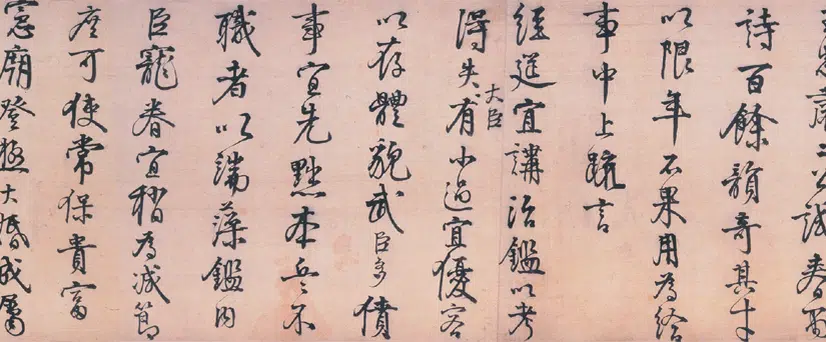 肅二公試春雨
詩百餘韻奇其才
以限年不果用為給
事中上疏言
經筵宜講治鑑以考
得失大臣有小過宜優容
以存體貌武臣多僨
事宜先黜本兵不
職者以端藻鑑內
臣寵眷宜稍為減節
庶可使常保貴富
憲廟登極大婚成屬